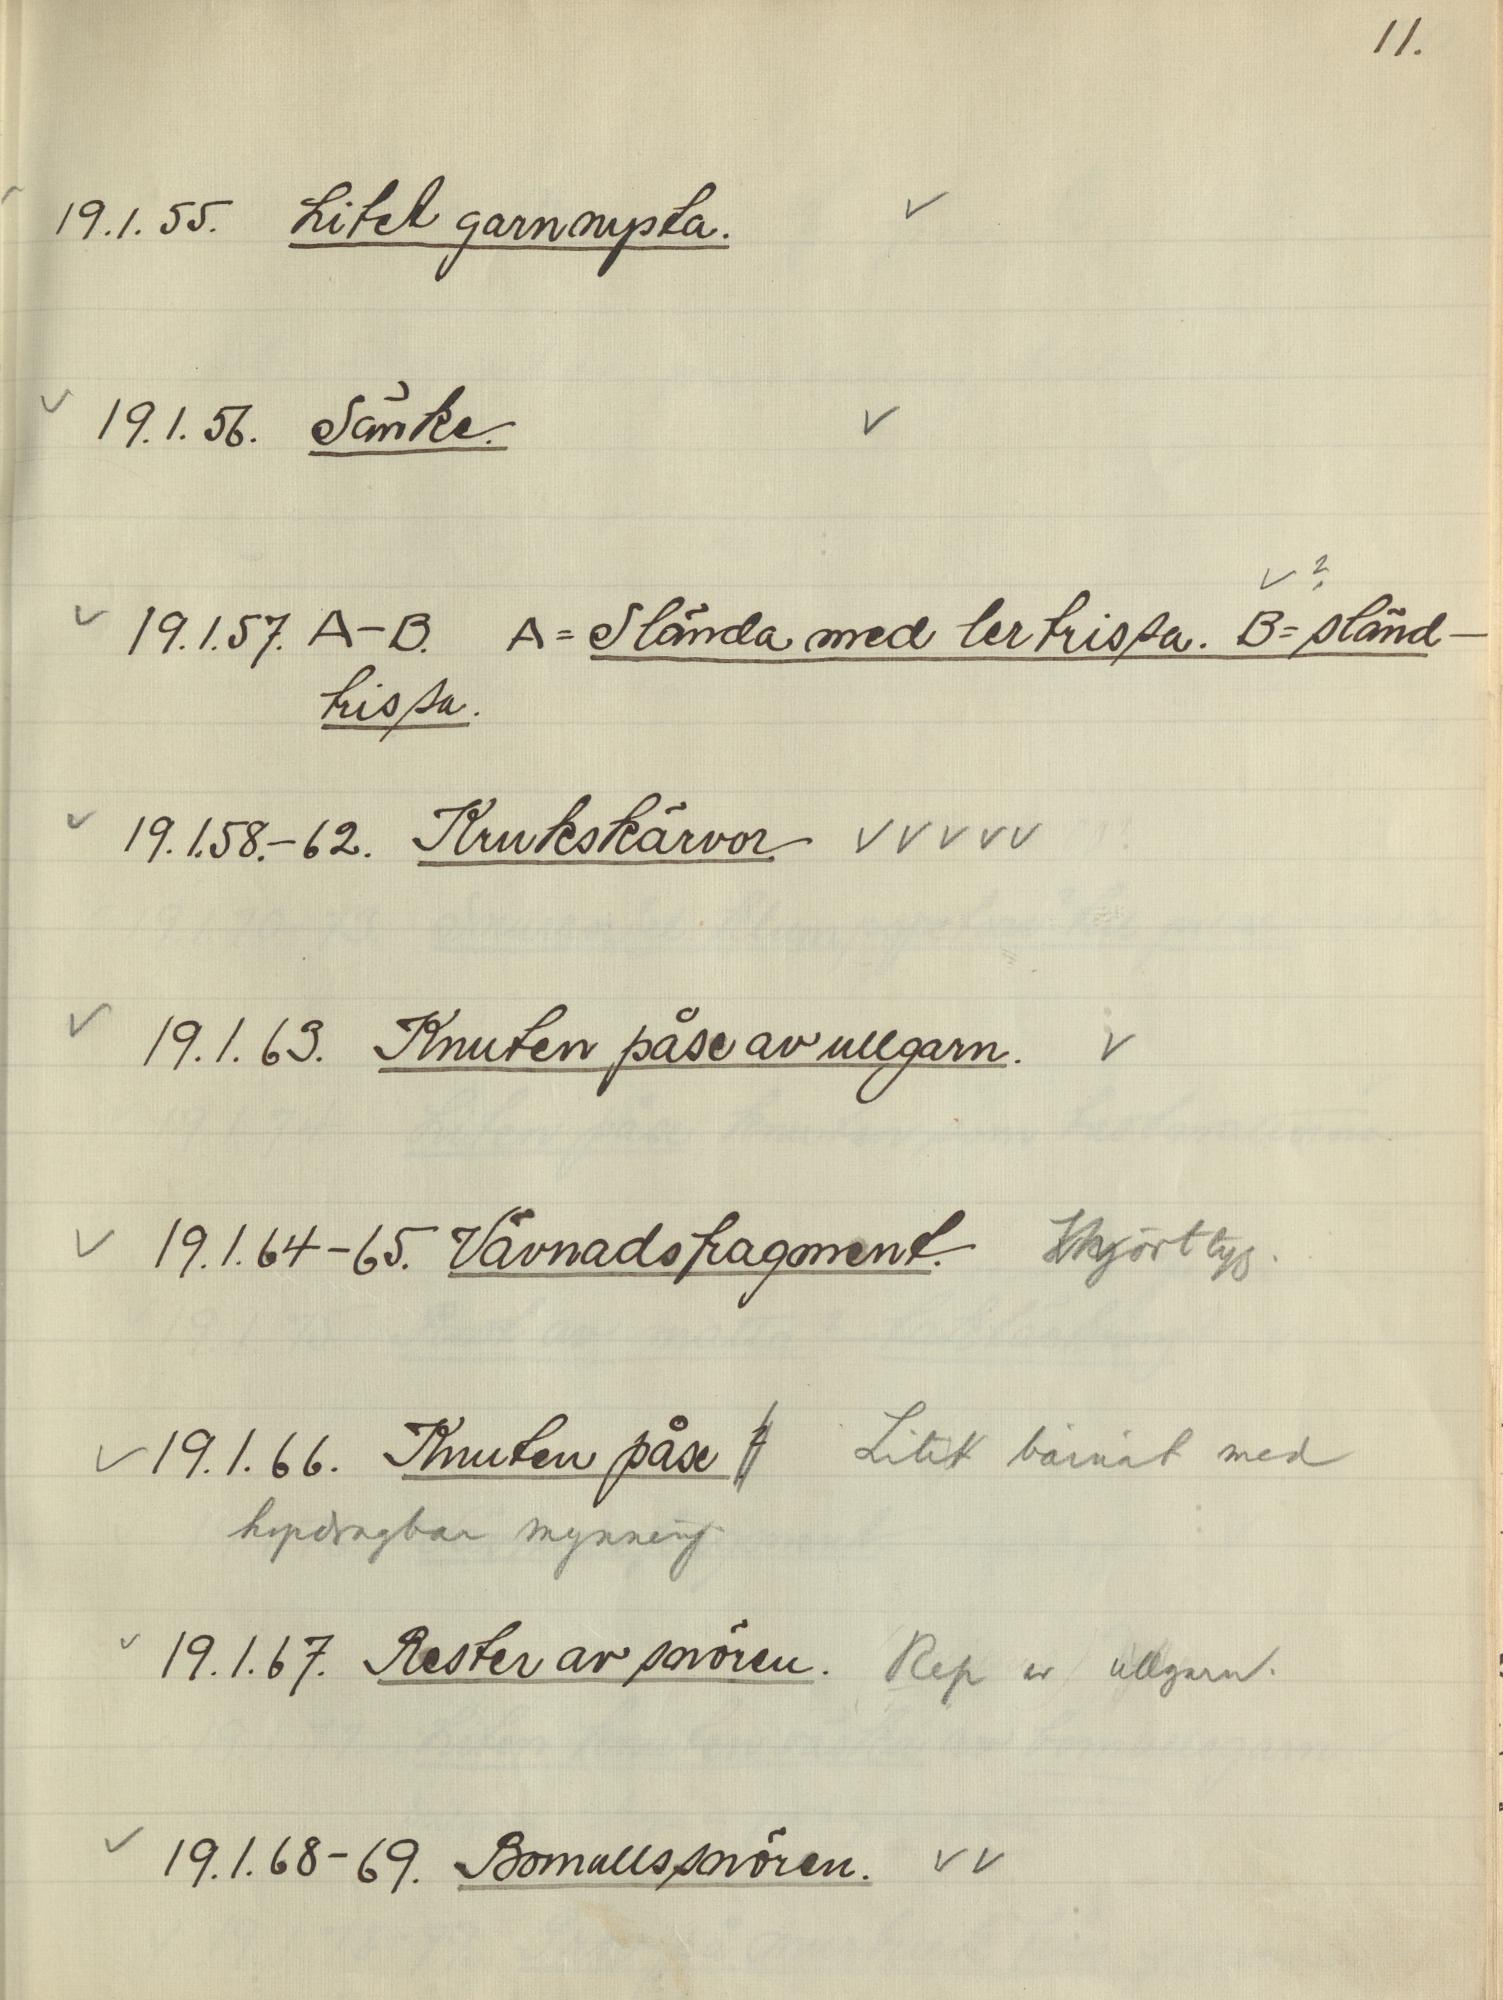 11.
19.1.55. Litet garnnysta. ✓
✓ 19.1.56. Sänke. ✓
✓ ?
✓ 19.1.57. A-B. A = Slända med lertrissa. B = sländ-
trissa.
✓ 19.1.58.-62. Krukskärvor ✓✓✓✓✓
✓ 19.1.63. Knuten påse av ullgarn. ✓
✓ 19.1.64-65. Vävnadsfragment. Skjorttyg.
✓ 19.1.66. Knuten påse Litet bärnät med
hopdragbar mynning.
✓ 19.1.67. Rester av snören. Rep av ullgarn.
✓ 19.1.68-69. Bomullssnören. ✓✓